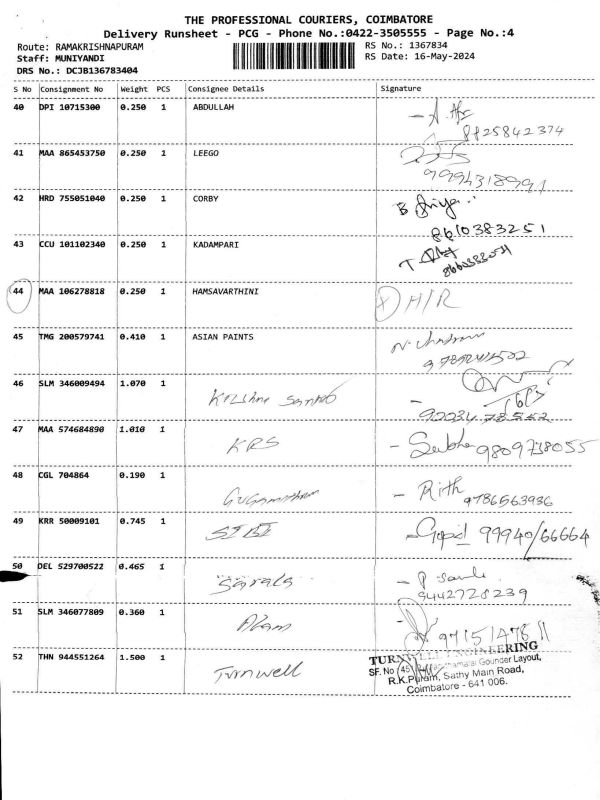 THE PROFESSIONAL COURIERS, COIMBATORE
Delivery Runsheet - PCG - Phone No.:0422-3505555 - Page No.:4
Route: RAMAKRISHNAPURAM RS No.: 1367834
Staff: MUNIYANDI RS Date: 16-May-2024
DRS No.: DCJB136783404
S No Consignment No Weight PCS Consignee Details Signature
40 DPI 10715300 0.250 1 ABDULLAH
8825842374
41 MAA 865453750 0.250 1 LEEGO
9994318991
42 HRD 755051040 0.250 1 CORBY B
8610383251
43 CCU 101102340 0.250 1 KADAMPARI
44 MAA 106278818 0.250 1 HAMSAVARTHINI H/R
45 TMG 200579741 0.410 1 ASIAN PAINTS
46 SLM 346009494 1.070 1 Krishna
47 MAA 574684890 1.010 1 KRS - 9809738055
48 CGL 704864 0.190 1 - Rith
9786563936
49 KRR 50009101 0.745 1 - Gopal 99940/66664
50 DEL 529700522 0.465 1 Sarala
9442728239
51 SLM 346077809 0.360 1
52 THN 944551264 1.500 1 Turnwell
TURNWELL ENGINEERING
SF. No Gounder Layout,
R.K.Puram, Sathy Main Road,
Coimbatore - 641 006.